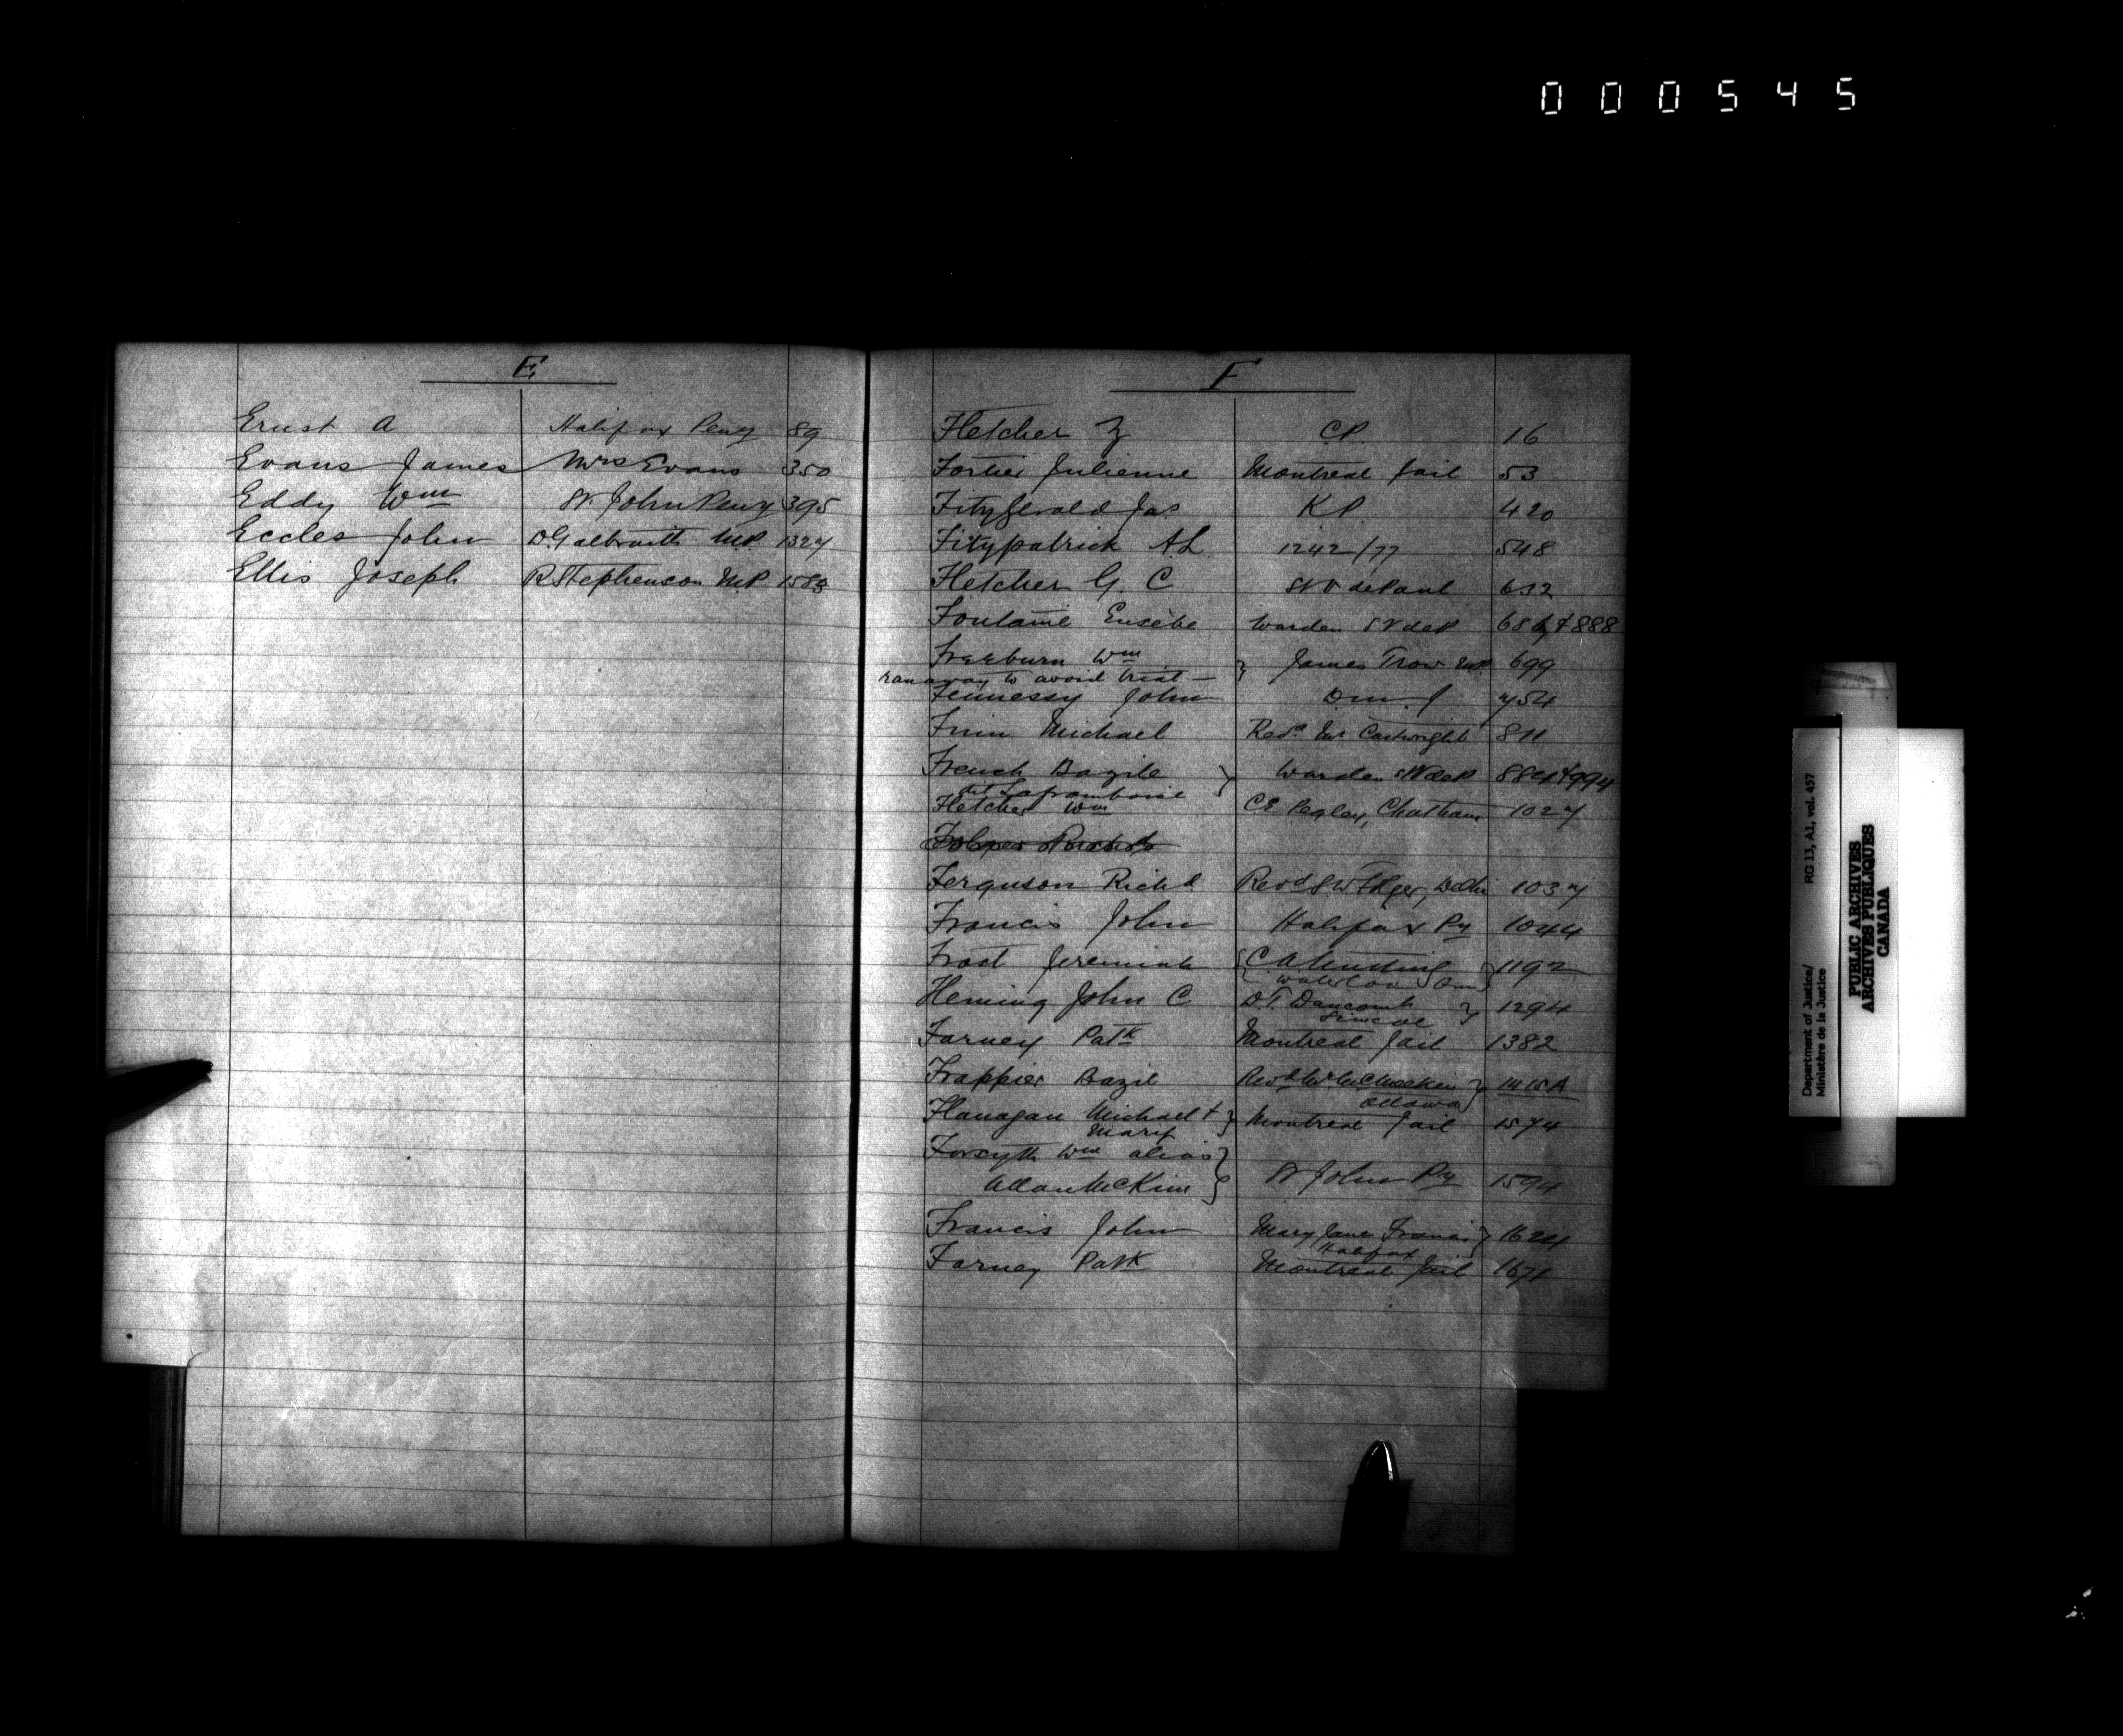 000545
E
Ernst A Halifax Peny 89
Evans James Mrs Evans 350
Eddy Wm St John Peny 395
Eccles John D. Galbraith M.P. 1327
Ellis Joseph R Stephenson M.P. 1583
F
Fletcher Z CP. 16
Fortier Julienne Montreal Jail 53
Fitzgerald Jas KP. 420
Fitzpatrick A.L. 1242/77 548
Fletcher G. C St V de Paul 632
Fontaine Eusèbe Warden S V de P & 888
Freeburn Wm } James Trow M.P. 699
ran away to avoid trial —
Fennessy John 754
Finn Michael Revd Mr Cartwright 811
French Bazile } Warden StV de P 884 & 994
dit Laframboise
Fletcher Wm CE Pegley, Chatham 1027
Ferguson Richd Revd S. W. Folger, Delhi 1037
Francis John Halifax Py 1044
Frost Jeremiah { C. A. } 1192
Waterloo Ont
Fleming John C D. T. } 1294
Simcoe
Farney Patk Montreal Jail 1382
Frappier Bazil Revd } 1415A
Ottawa
Flanagan Michael + } Montreal Jail 1574
Mary
Forsyth Wm alias }
Allan McKim St John Py 1594
Francis John Mary Jane Francis } 1624
Halifax
Farney Patk Montreal Jail 1671
Department of Justice/ RG 13, A1, vol. 457
Ministère de la Justice
PUBLIC ARCHIVES
ARCHIVES PUBLIQUES
CANADA